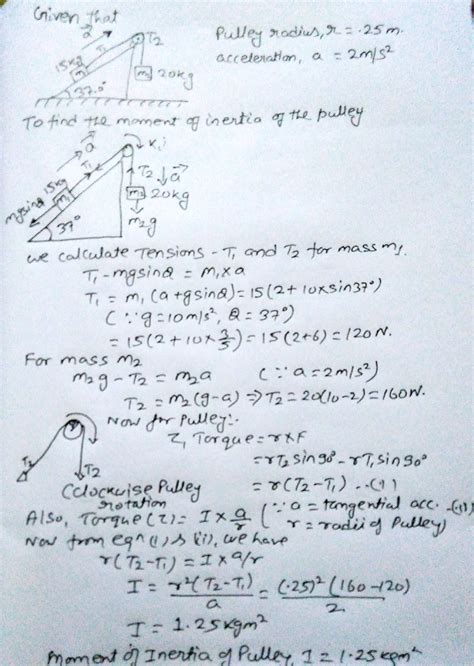 Given that
Pulley radius, r = .25 m.
acceleration, a = 2m/s²
a
T2
T1
15kg
m1
m2 20kg
37.0°
To find the moment of inertia of the pulley
a
T1
T2 ↓a
15kg
m1
m2 20kg
mgsinθ
m2g
37°
we calculate Tensions - T1 and T2 for mass m1.
T1 - mgsinθ = m1 x a
T1 = m1 (a+gsinθ) = 15(2+10xsin37°)
(∵ g=10m/s², θ = 37°)
= 15(2+10x3/5) = 15(2+6) = 120N.
For mass m2
m2g - T2 = m2a (∵ a = 2m/s²)
T2 = m2(g-a) ⇒ T2 = 20(10-2) = 160N.
Now for Pulley:-
Torque = rxF
= rT2 sin90° - rT1 sin90°
= r(T2-T1) ..(1)
T2
Cclockwise Pulley
rotation
Also, Torque (τ) = I x a/r (∵ a = tangential acc. -(ii)
r = radii of Pulley)
Now from eqn (i) & (ii), we have
r(T2-T1) = I x a/r
I = r²(T2-T1)/a = (.25)² (160-120)/2
I = 1.25 kgm²
Moment of Inertia of Pulley I = 1.25 kgm²